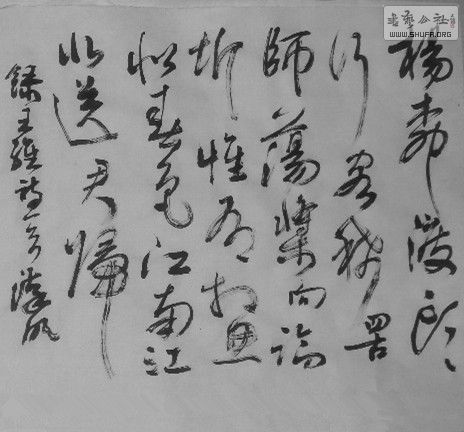 書艺公社
WWW.SHUFA.ORG
楊柳渡頭
行客稀罟
師蕩槳向臨
圻惟有相思
似春色江南江
北送君歸
錄王維詩一首